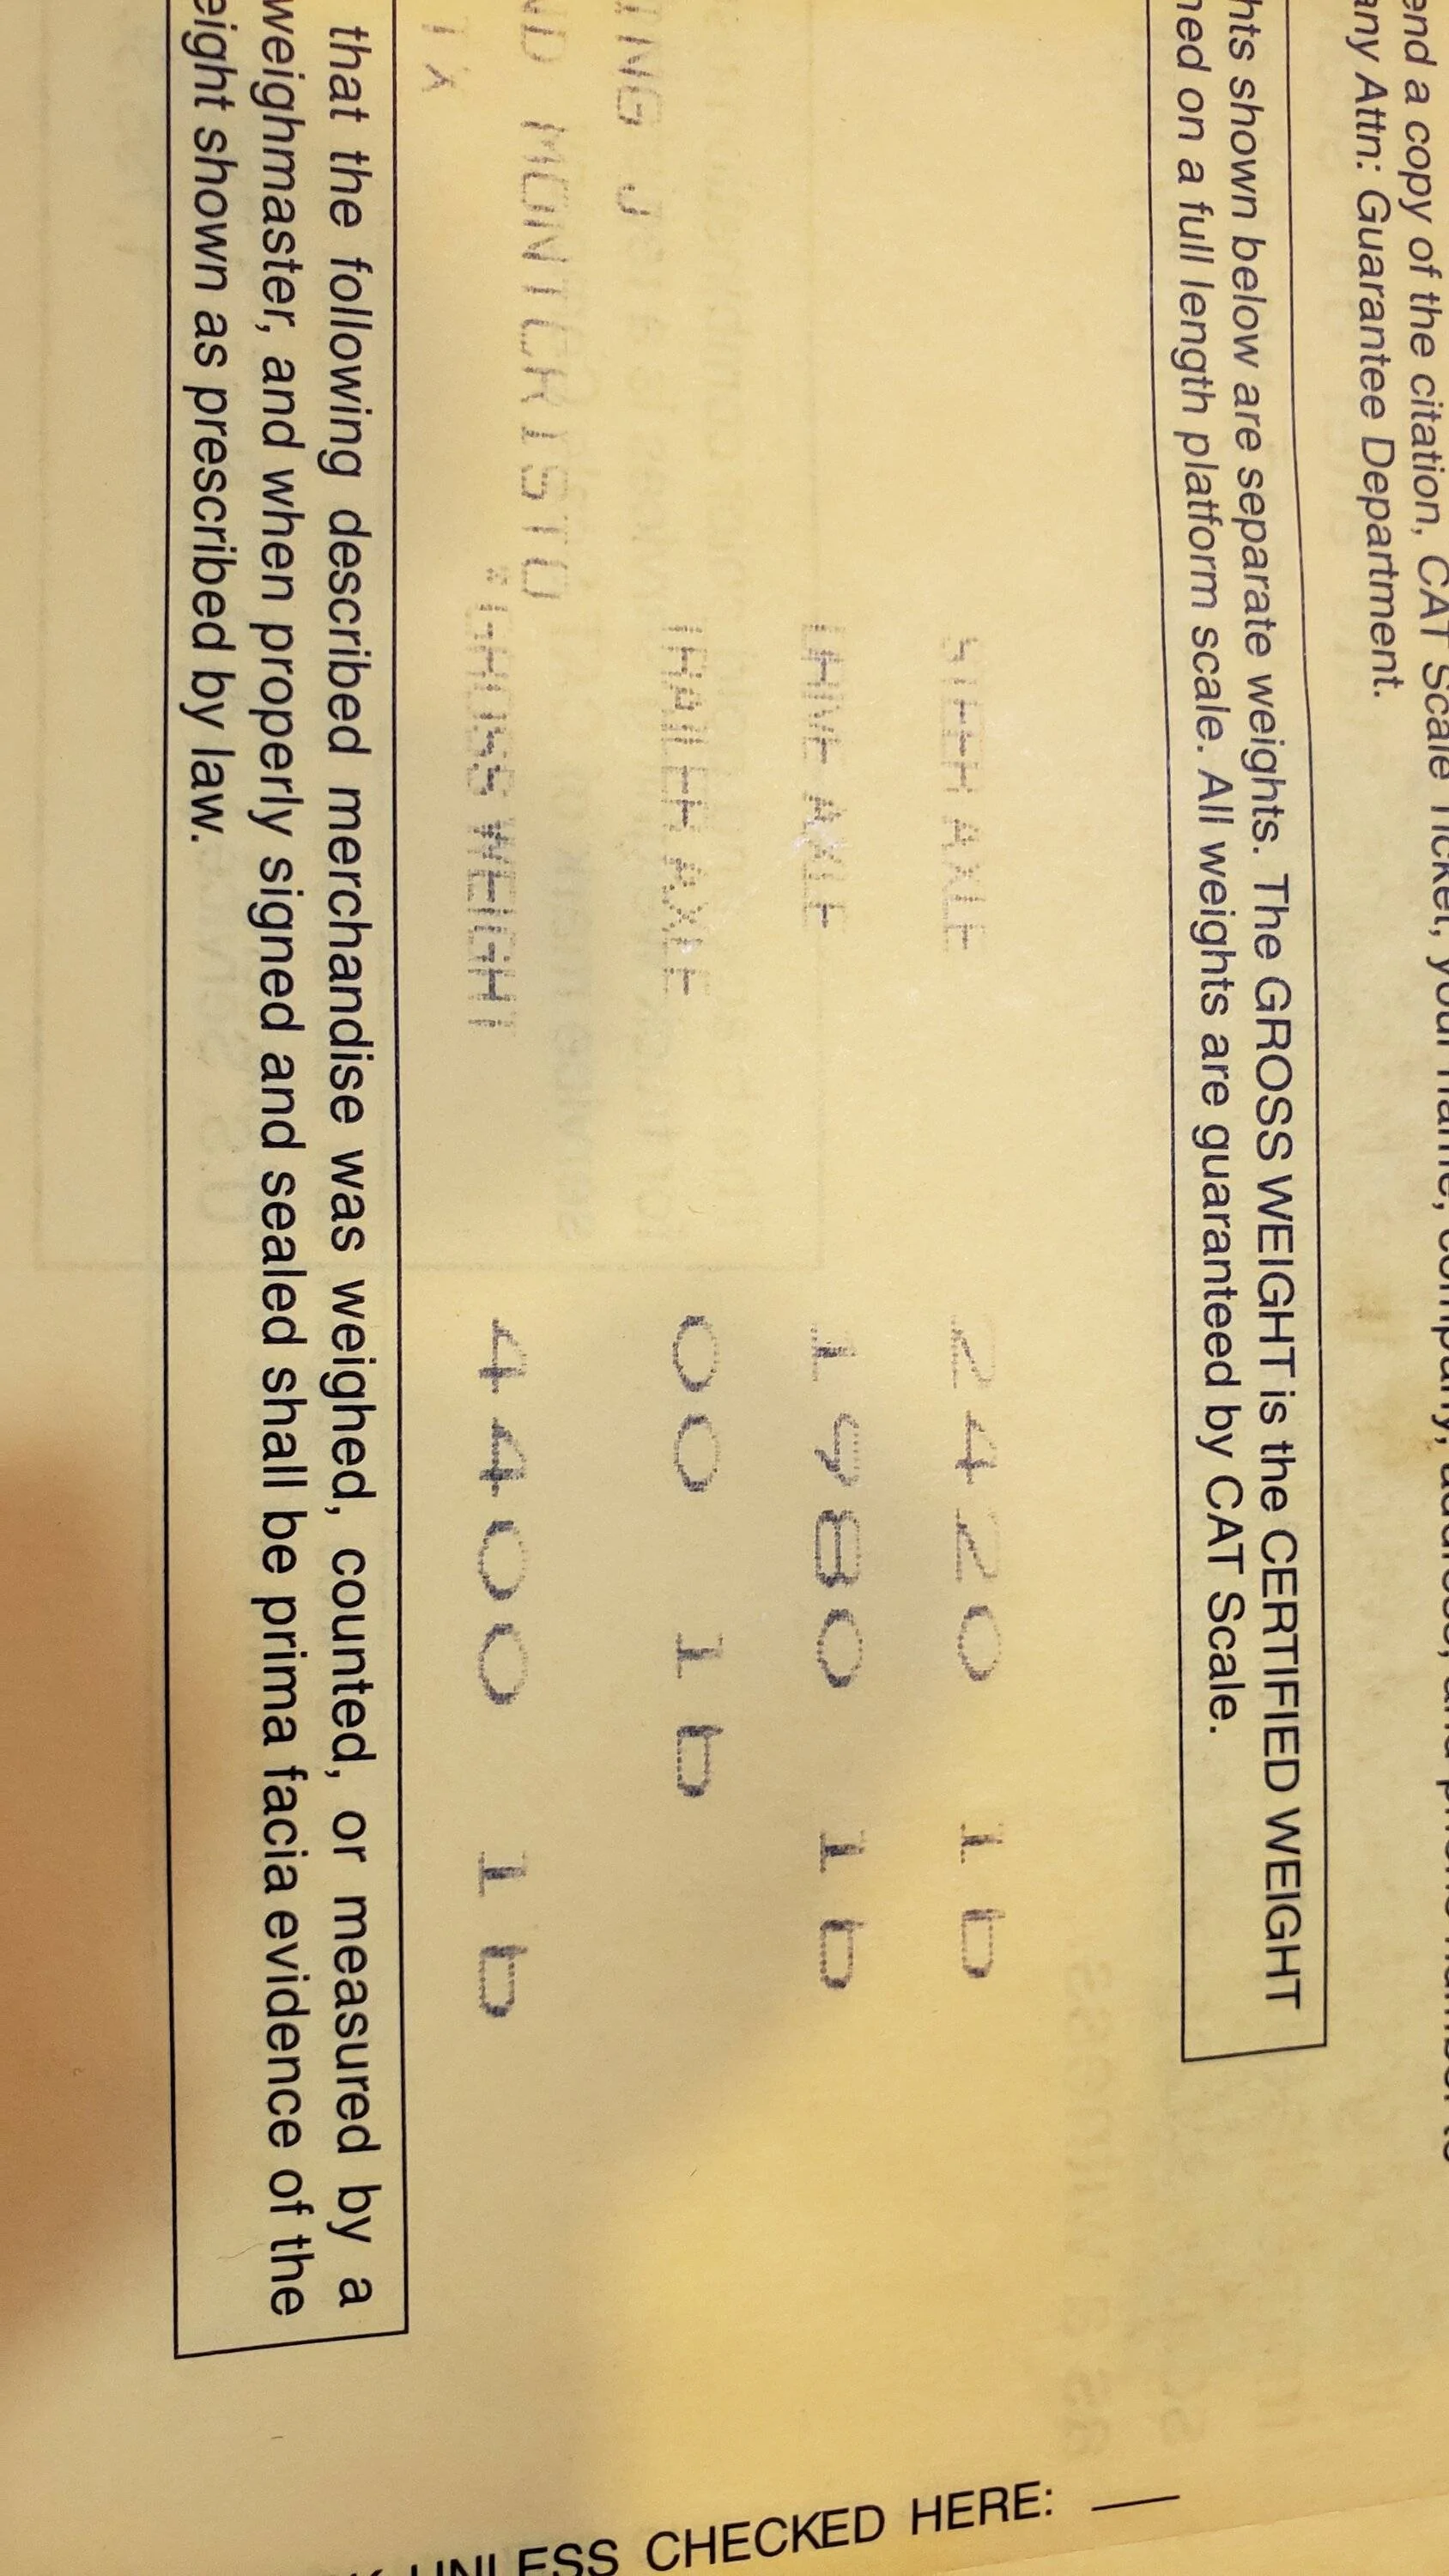 end a copy of the citation, CAT Scale Ticket, your name, company, address, and phone number to
any Attn: Guarantee Department.
hts shown below are separate weights. The GROSS WEIGHT is the CERTIFIED WEIGHT
ned on a full length platform scale. All weights are guaranteed by CAT Scale.
STEER AXLE 2420 lb
DRIVE AXLE 1980 lb
ING J TRAILER AXLE 00 lb
ND MONTCRISTO
GROSS WEIGHT 4400 lb
TX
that the following described merchandise was weighed, counted, or measured by a
weighmaster, and when properly signed and sealed shall be prima facia evidence of the
eight shown as prescribed by law.
UNLESS CHECKED HERE: __